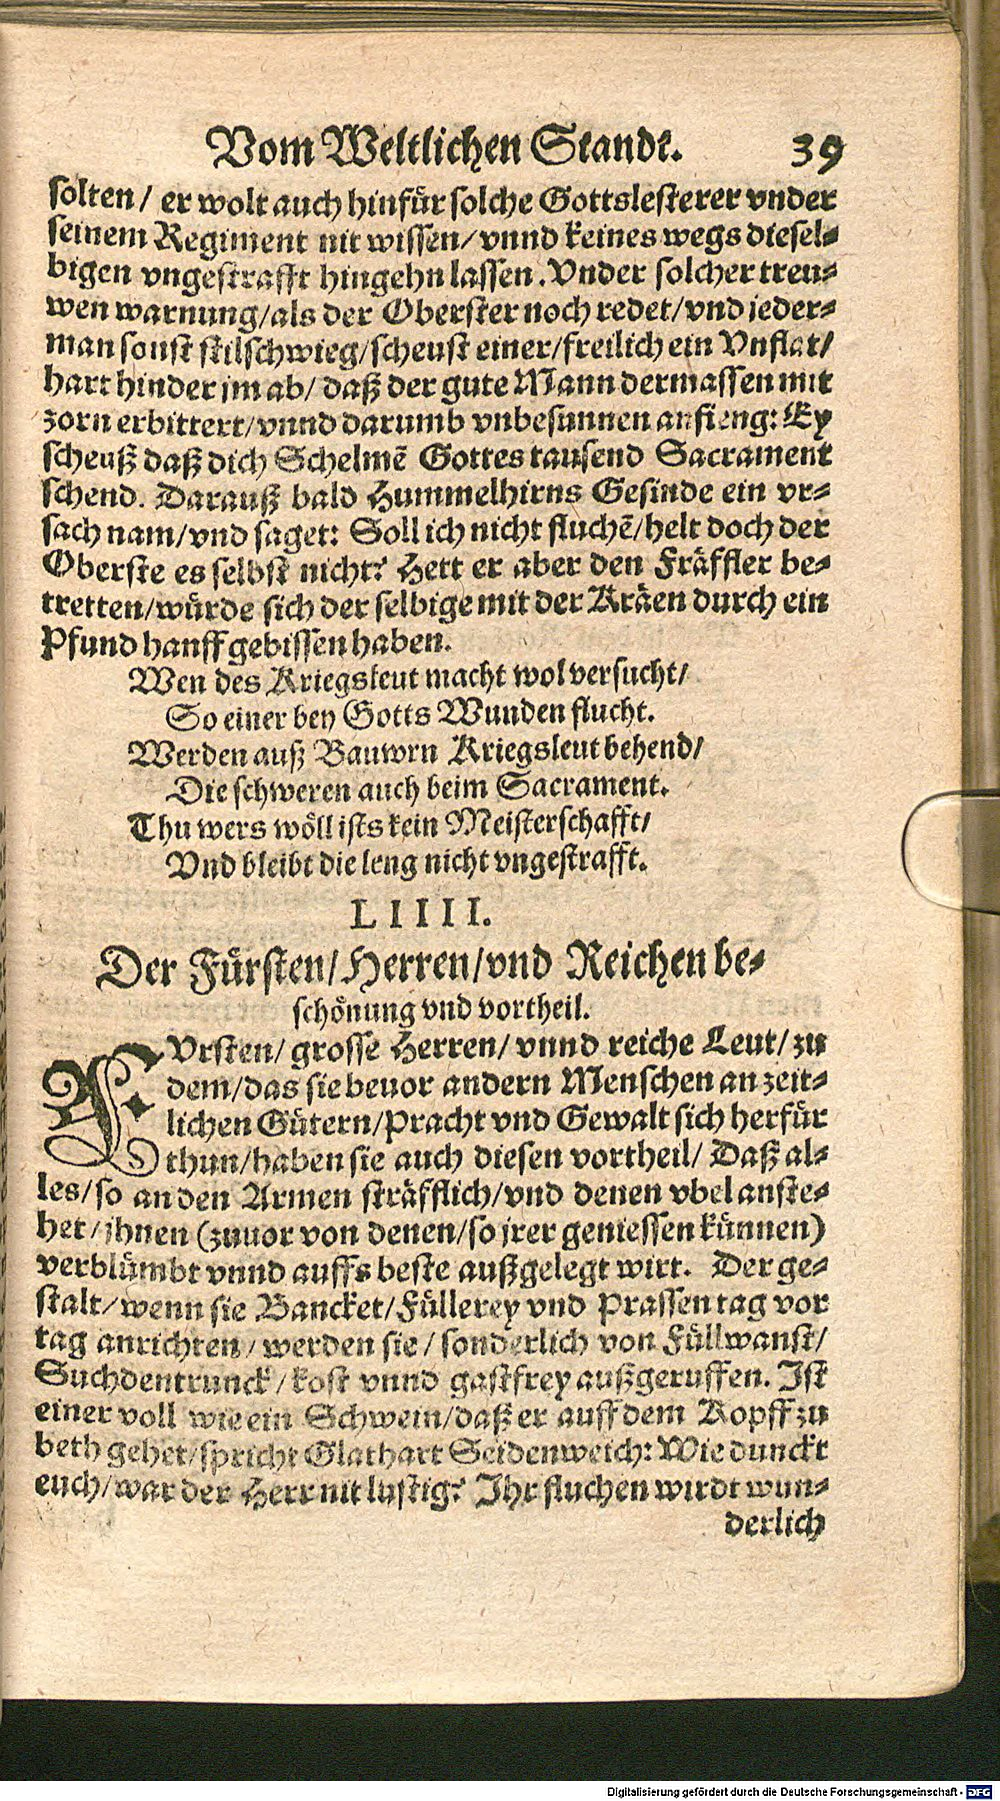 Vom Weltlichen Stande. 39
solten/ er wolt auch hinfür solche Gottslesterer vnder
seinem Regiment nit wissen/ vnnd keines wegs diesel-
bigen vngestrafft hingehn lassen. Vnder solcher treu-
wen warnung/ als der Oberster noch redet/ vnd jeder-
man sonst stilschwieg/ scheust einer/ freilich ein Vnflat/
hart hinder jm ab/ daß der gute Mann dermassen mit
zorn erbittert/ vnnd darumb vnbesunnen anfieng: Ey
scheuß daß dich Schelmē Gottes tausend Sacrament
schend. Darauß bald Hummelhirns Gesinde ein vr-
sach nam/ vnd saget: Soll ich nicht fluchē/ helt doch der
Oberste es selbst nicht? Hett er aber den Fräffler be-
tretten/ würde sich der selbige mit der Kräen durch ein
Pfund hanff gebissen haben.
Wen des Kriegsleut macht wol versucht/
So einer bey Gotts Wunden flucht.
Werden auß Bauwrn Kriegsleut behend/
Die schweren auch beim Sacrament.
Thu wers wöll ists kein Meisterschafft/
Vnd bleibt die leng nicht vngestrafft.
LIIII.
Der Fürsten/ Herren/ vnd Reichen be-
schönung vnd vortheil.
FVrsten/ grosse Herren/ vnnd reiche Leut/ zu
dem/ das sie beuor andern Menschen an zeit-
lichen Gütern/ Pracht vnd Gewalt sich herfür
thun/ haben sie auch diesen vortheil/ Daß al-
les/ so an den Armen sträfflich/ vnd denen vbel anste-
het/ jhnen (zuuor von denen/ so jrer geniessen künnen)
verblümbt vnnd auffs beste außgelegt wirt. Der ge-
stalt/ wenn sie Bancket/ Füllerey vnd Prassen tag vor
tag anrichten/ werden sie/ sonderlich von Füllwanst/
Suchdentrunck/ kost vnnd gastfrey außgeruffen. Ist
einer voll wie ein Schwein/ daß er auff dem Kopff zu
beth gehet/ spricht Glathart Seidenweich: Wie dunckt
euch/ war der Herr nit lustig? Ihr fluchen wirdt wun-
derlich
Digitalisierung gefördert durch die Deutsche Forschungsgemeinschaft - DFG